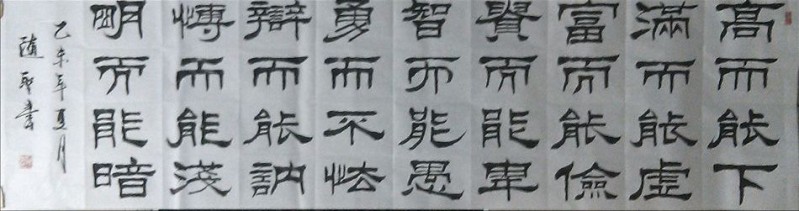 高而能下
滿而能虛
富而能儉
貴而能卑
智而能愚
勇而不怯
辯而能訥
愽而能淺
明而能暗
乙未年夏月
書